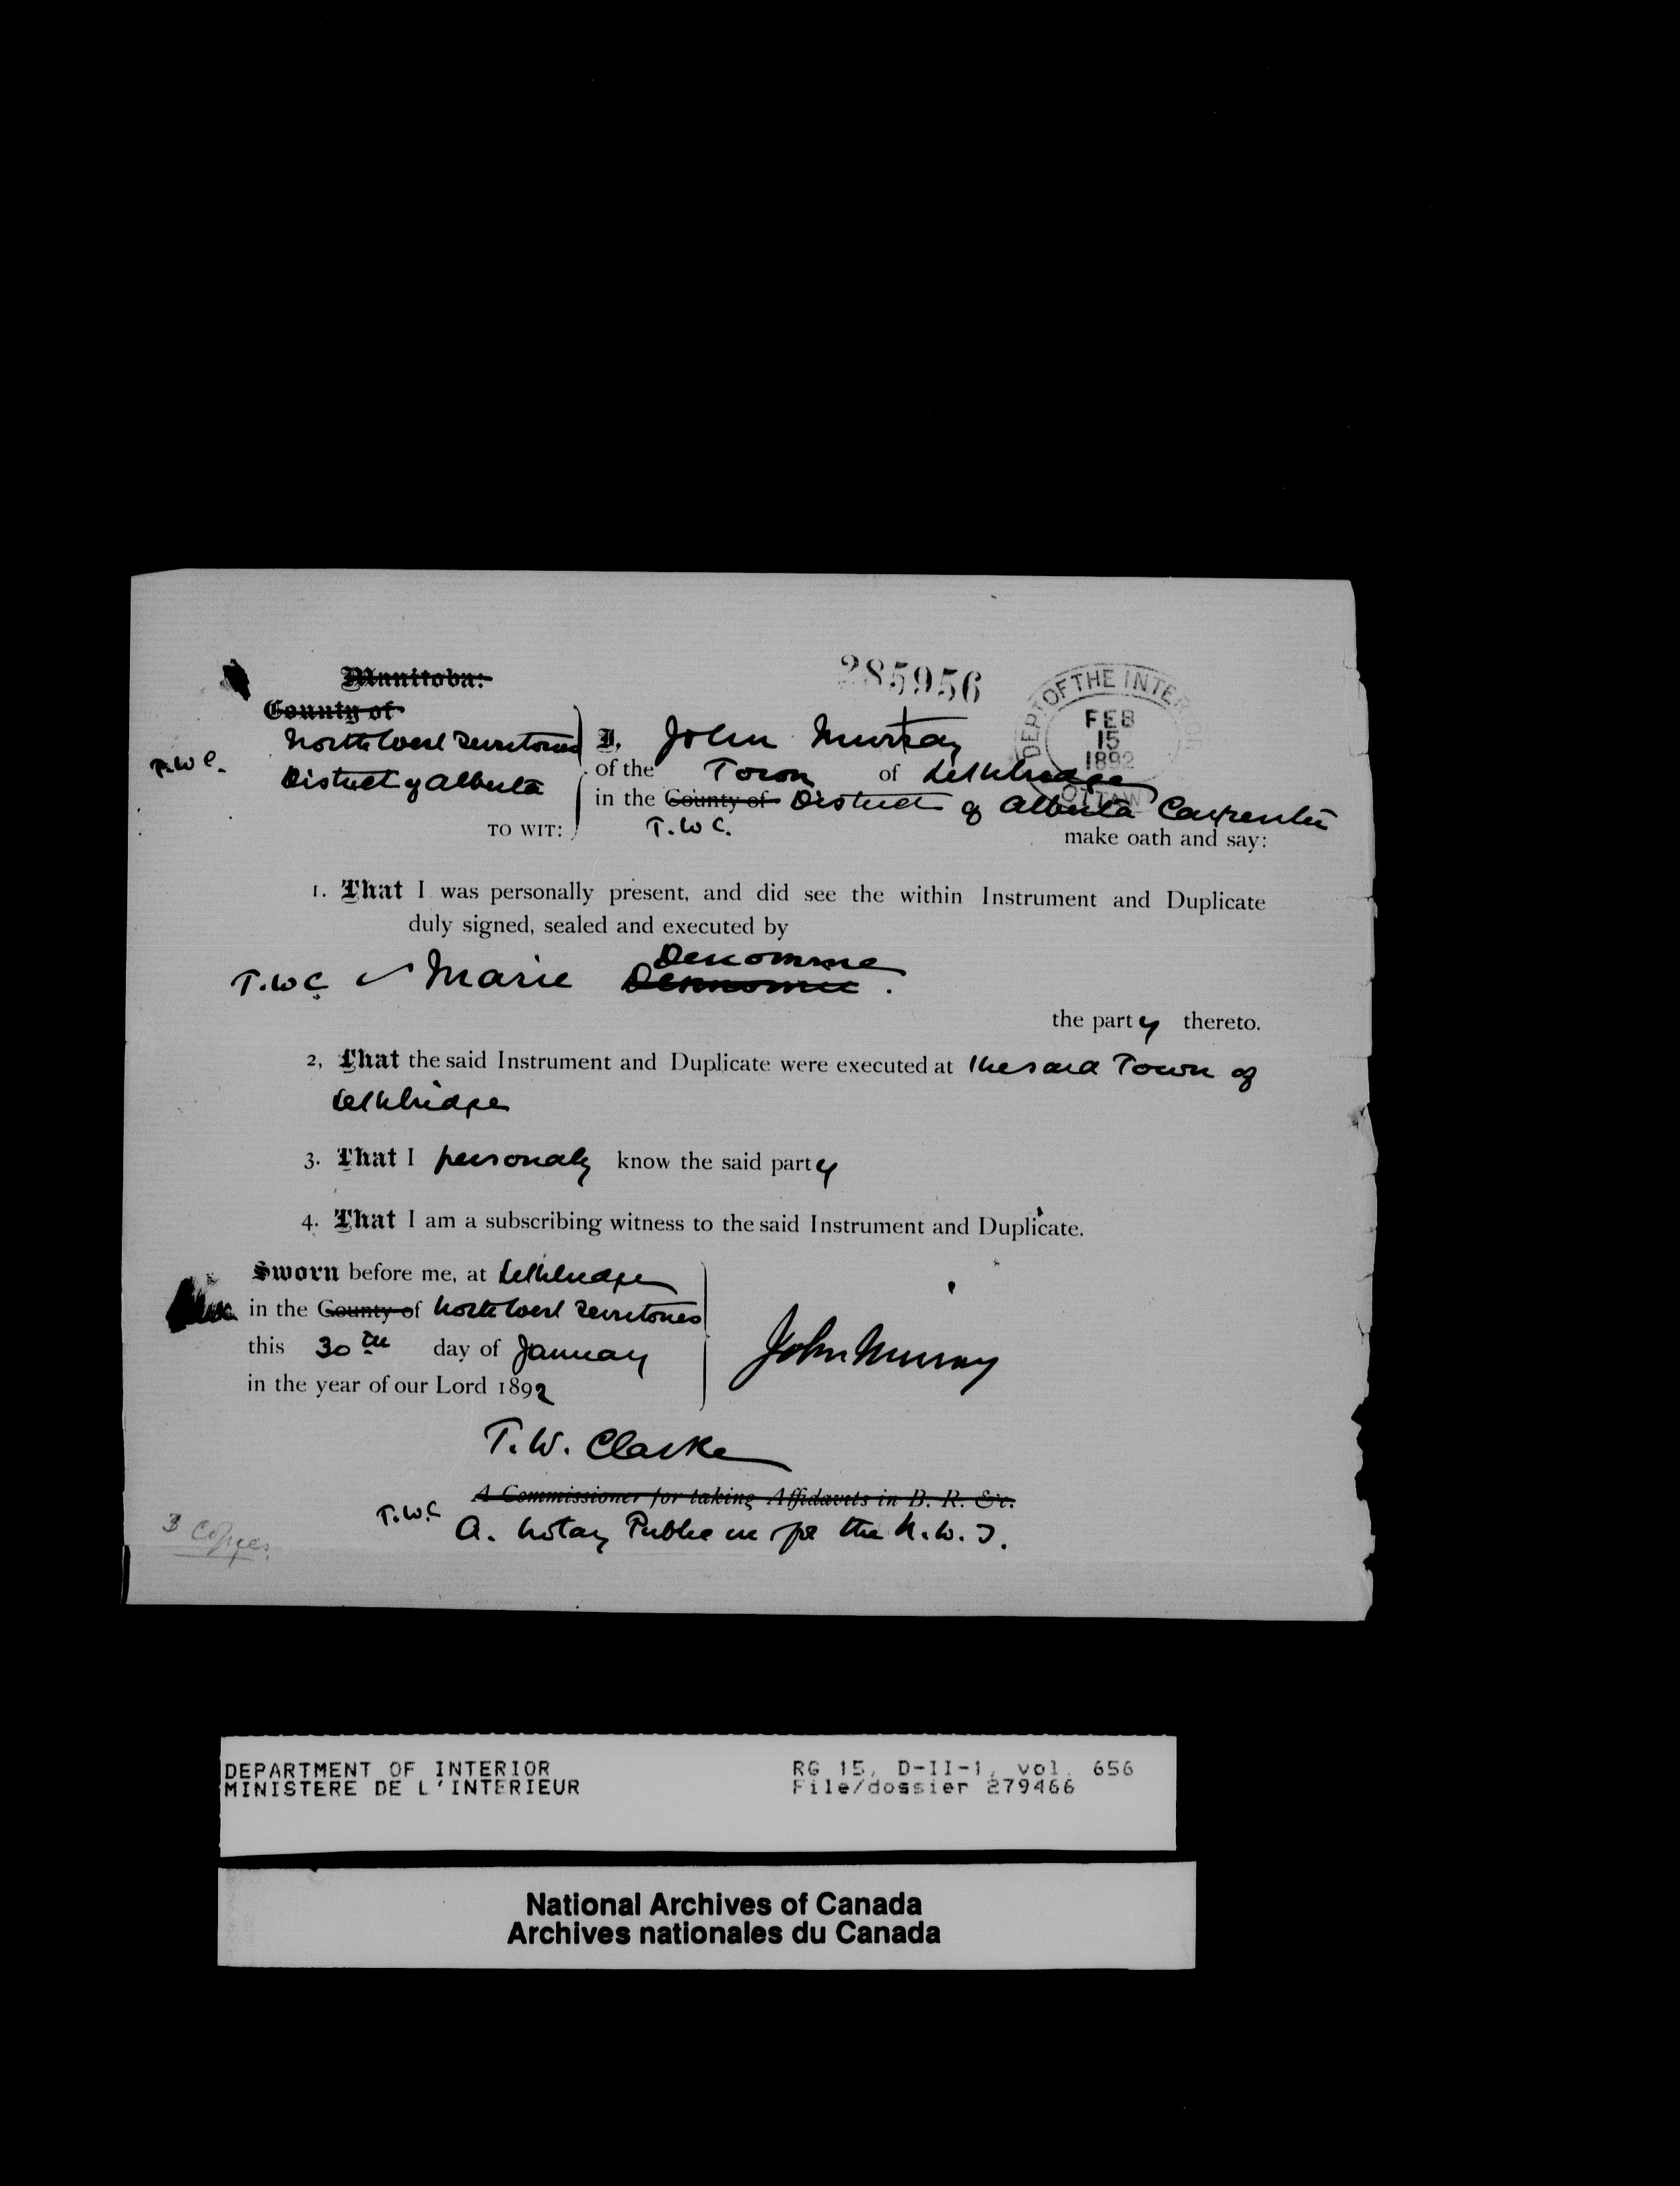 Manitoba:
County of
North West Territories
T.W.C.
District of Alberta
TO WIT:
285956
DEPT OF THE INTERIOR
FEB
15
1892
OTTAWA
I, John Murray
of the Town of Lethbridge
in the County of District of Alberta Carpenter
T.W.C.
make oath and say:
1. That I was personally present, and did see the within Instrument and Duplicate
duly signed, sealed and executed by
Denomme
T.W.C. Marie
the party thereto.
2, That the said Instrument and Duplicate were executed at the said Town of
Lethbridge
3. That I personaly know the said party
4. That I am a subscribing witness to the said Instrument and Duplicate.
Sworn before me, at Lethbridge
in the County of North West Territories
this 30th day of January
in the year of our Lord 1892
John Murray
T.W. Clarke
A Commissioner for taking Affidavits in B. R. &c.
T.W.C.
A. Notary Public in for the N.W.T.
3 Copies
DEPARTMENT OF INTERIOR
MINISTERE DE L'INTERIEUR
RG 15, D-II-1, vol. 656
File/dossier 279466
National Archives of Canada
Archives nationales du Canada